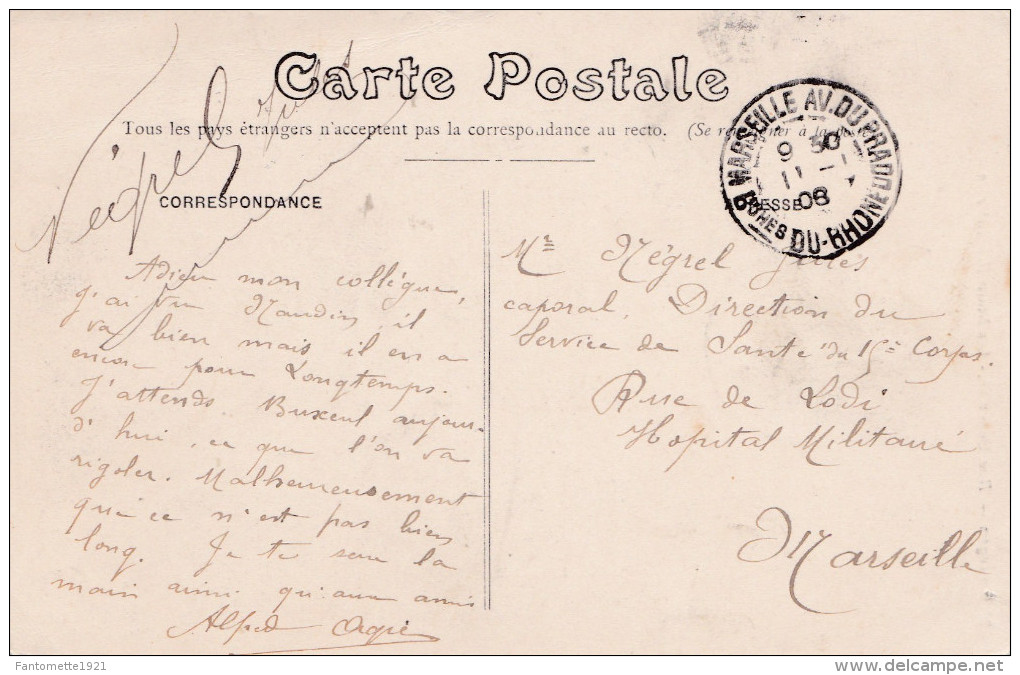 Carte Postale
Tous les pays étrangers n'acceptent pas la correspondance au recto. (Se renseigner à la poste)
Négrel Jules
CORRESPONDANCE
MARSEILLE AV. DU PRADO
9 30
11 - 1
08
BCHES DU-RHONE
Adieu mon collégue,
j'ai vu Naudin, il
va bien mais il en a
encore pour Longtemps.
J'attends Buxeul aujour-
d'hui, ce que l'on va
rigoler. Malheureusement
que ce n'est pas bien
long. Je te serre la
main ainsi qu'aux amis
Alfred
Mr Négrel Jules
caporal, Direction du
Service de Santé du 15e Corps.
Rue de Lodi
Hopital Militaire
Marseille
Fantomette1921
delcampe.net